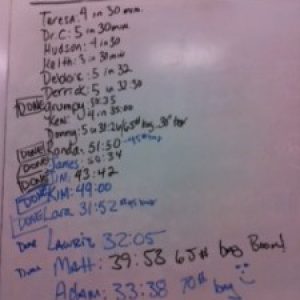 Teresa: 4 in 30 min.
Dr. C: 5 in 30 min
Hudson: 4 in 30
Keith: 3 in 30 min
Debbie: 5 in 32
Derrick: 5 in 32:30
DONE Grumpy
Ken: 4 in 35:00
Donny: 5 in 30:26/65# bag, 30" box
DONE Ronda: 51:50
DONE James: 50:34
DONE Jim: 43:42
DONE KIM: 49:00
DONE Lara 31:52
DONE Laurie 32:05
DONE Matt: 39:53 65# bag Boom!
Adam: 33:38 70# bag